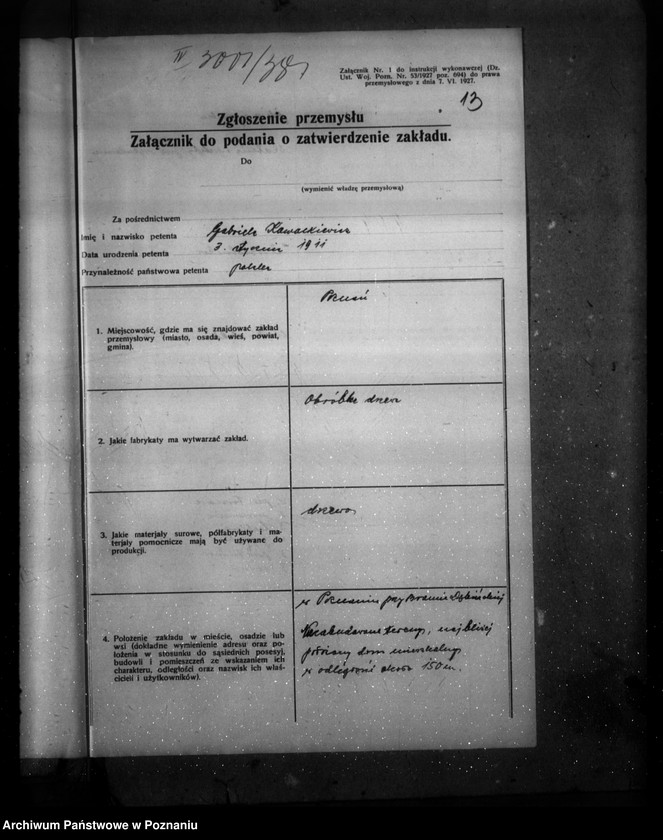 IV 3001/38
Załącznik Nr. 1 do instrukcji wykonawczej (Dz.
Ust. Woj. Pozn. Nr. 53/1927 poz. 694) do prawa
przemysłowego z dnia 7. VI. 1927.
13
Zgłoszenie przemysłu
Załącznik do podania o zatwierdzenie zakładu.
Do
(wymienić władzę przemysłową)
Za pośrednictwem
Imię i nazwisko petenta Gabriela
Data urodzenia petenta 3. stycznia 1911
Przynależność państwowa petenta polska
1. Miejscowość, gdzie ma się znajdować zakład
przemysłowy (miasto, osada, wieś, powiat,
gmina).
Poznań
2. Jakie fabrykaty ma wytwarzać zakład.
Obróbka drzewa
3. Jakie materjały surowe, półfabrykaty i ma-
terjały pomocnicze mają być używane do
produkcji.
drzewo
4. Położenie zakładu w mieście, osadzie lub
wsi (dokładne wymienienie adresu oraz po-
łożenia w stosunku do sąsiednich posesyj,
budowli i pomieszczeń ze wskazaniem ich
charakteru, odległości oraz nazwisk ich właś-
cicieli i użytkowników).
w Poznaniu przy Bramie Dębińskiej
Niezabudowane tereny, najbliżej
położony dom mieszkalny
w odległości około 150 m.
Archiwum Państwowe w Poznaniu